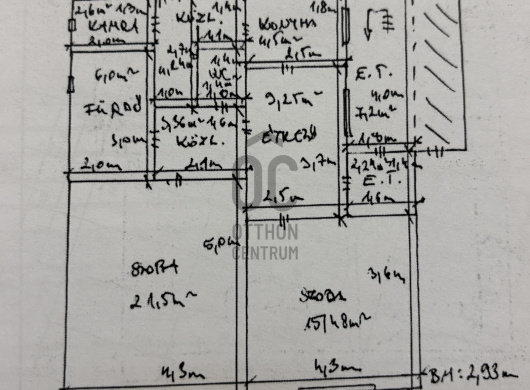 2,6m² 1,3m
KAMRA
2,0m
KÖZL.
2,7m
4,24m²
1,0m
1,4m
1,1m
1,4m
WC
1,4m²
1,0m
KONYHA
4,5m²
2,5m
1,8m
E.T.
4,0m
7,2m²
1,8m
6,0m²
FÜRDŐ
3,0m
2,0m
3,36m² 1,6m
KÖZL.
2,1m
9,25m²
ÉTKEZŐ
3,7m
2,5m
2,24m² 1,4m
E.T.
1,6m
OC
OTTHON
CENTRUM
5,0m
SZOBA
21,5m²
4,3m
SZOBA
15,48m²
3,6m
4,3m
BM: 2,93m